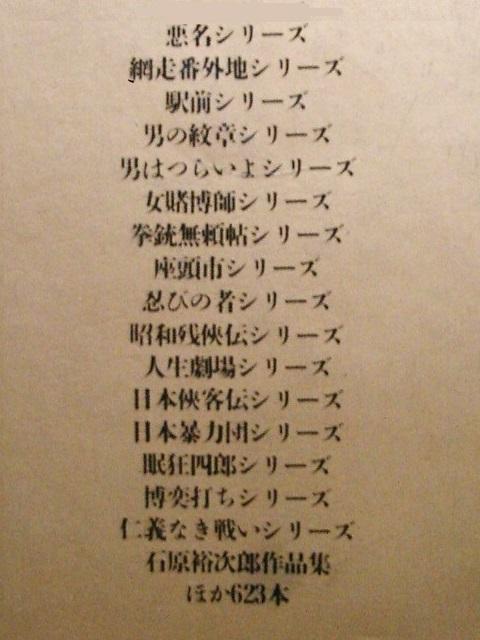 悪名シリーズ
網走番外地シリーズ
駅前シリーズ
男の紋章シリーズ
男はつらいよシリーズ
女賭博師シリーズ
拳銃無頼帖シリーズ
座頭市シリーズ
忍びの者シリーズ
昭和残侠伝シリーズ
人生劇場シリーズ
日本侠客伝シリーズ
日本暴力団シリーズ
眠狂四郎シリーズ
博奕打ちシリーズ
仁義なき戦いシリーズ
石原裕次郎作品集
ほか623本